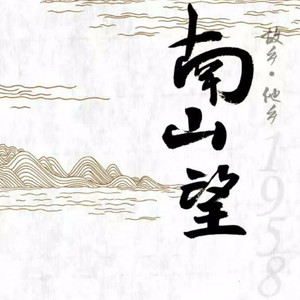 南山望
故乡·他乡
1958